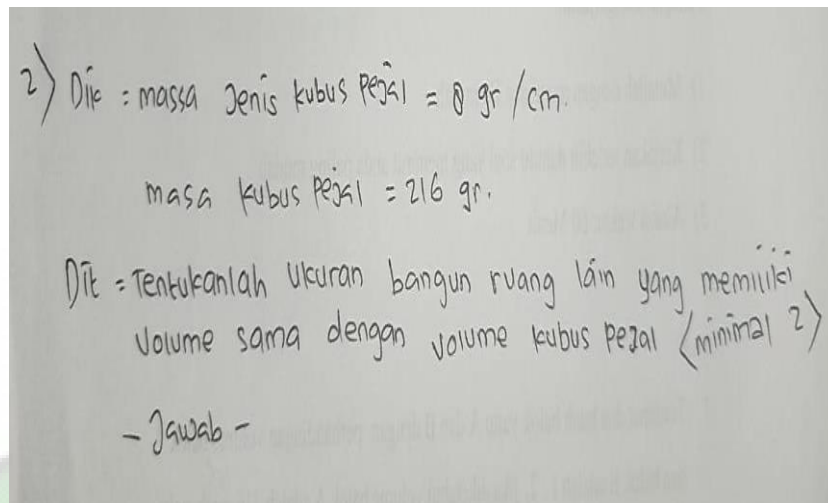 2) Dik : massa Jenis kubus pejal = 8 gr/cm.
masa kubus pejal = 216 gr.
Dit = Tentukanlah Ukuran bangun ruang lain yang memiliki
Volume sama dengan volume kubus pejal (minimal 2)
- Jawab -